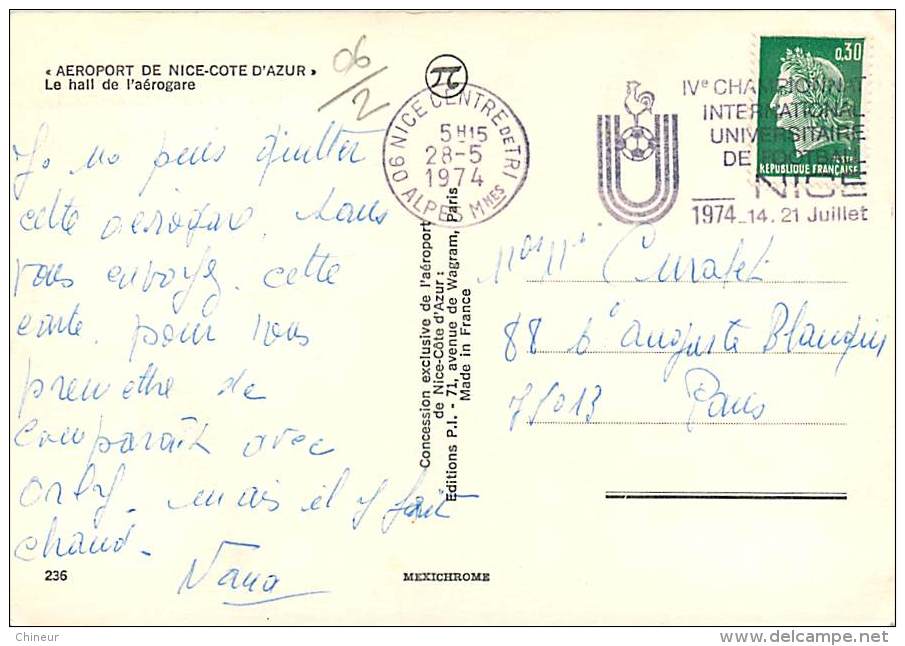 « AEROPORT DE NICE-COTE D'AZUR »
Le hall de l'aérogare
06/2
π
06 NICE CENTRE DE TRI
5H15
28-5
1974
ALPES Mmes
IVe CHAMPIONNAT
INTERNATIONAL
UNIVERSITAIRE
DE FOOTBALL
NICE
1974_14. 21 Juillet
0,30
REPUBLIQUE FRANÇAISE
Je ne puis quitter
cette aérogare sans
vous envoyer cette
carte pour vous
permettre de
comparaît avec
Orly. mais il y fait
chaud.
Nana
Curatet
88 bd auguste Blanqui
75013 Paris
Concession exclusive de l'aéroport
de Nice-Côte d'Azur :
Editions P.I. - 71, avenue de Wagram, Paris
Made in France
236
MEXICHROME
Chineur
delcampe.net